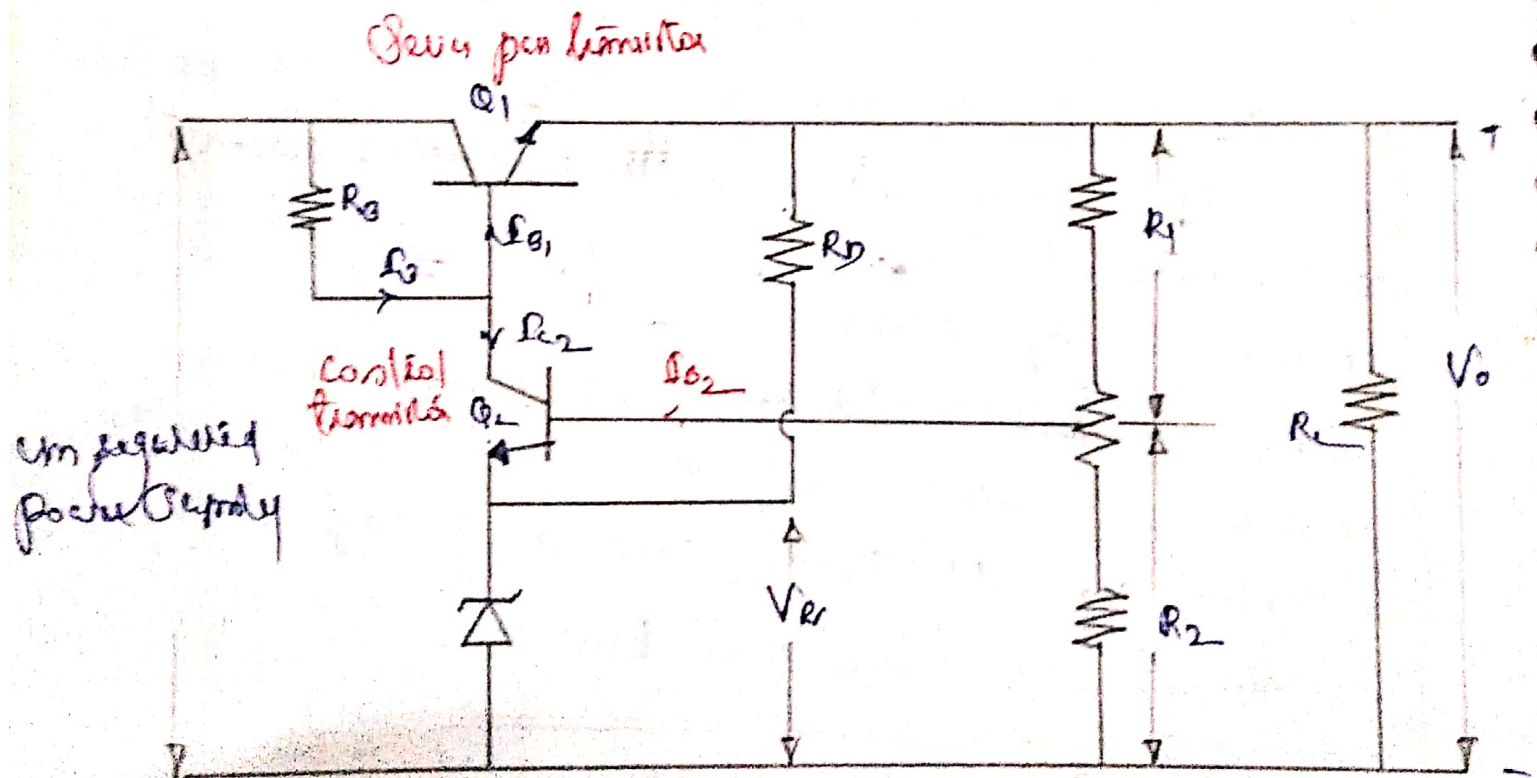 Series pass transistor
Q1
+
R3
IB1
R1
RD
I3
IC2
Control
IB2
transistor Q2
V0
RL
unregulated
power supply
VR
R2
-